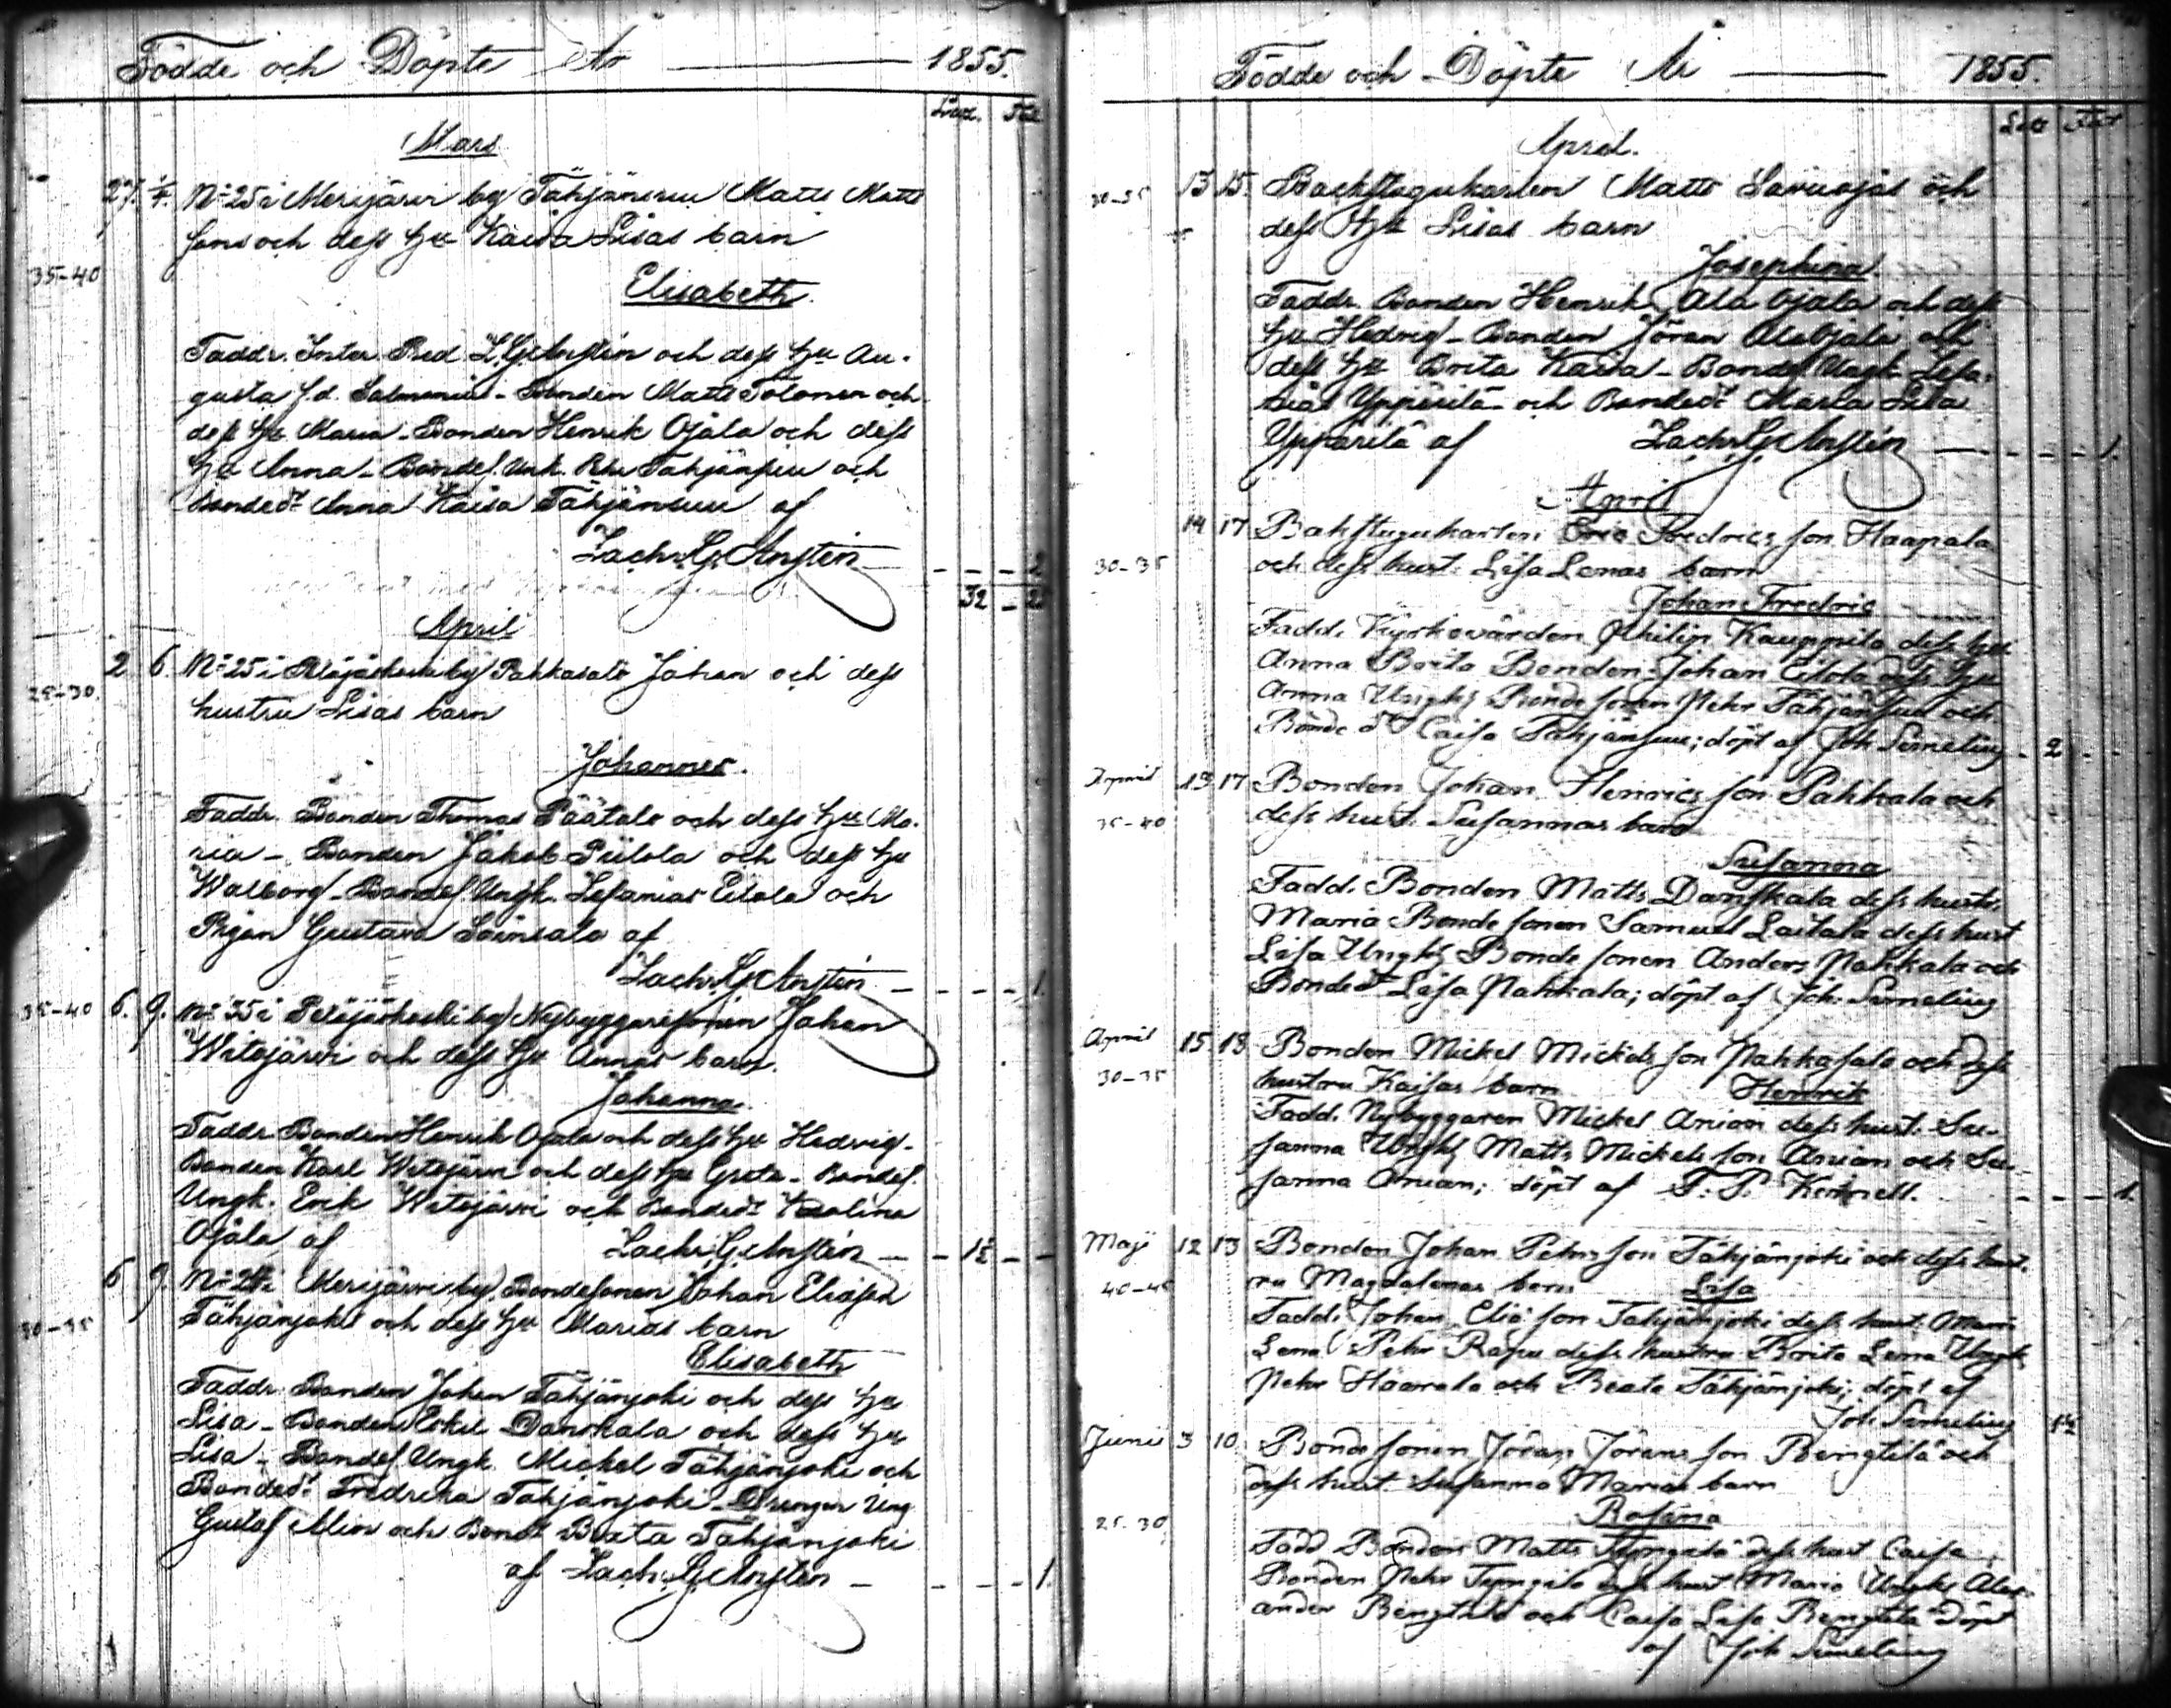 Födde och Döpte År 1855.
Mars
27. 1/4. No 25 i Merijärvi by Tähjänsuu Matts Matts
sons och dess hu Kaisa Lisas barn
35-40
Elisabeth.
Faddr. Inster. Pred. Z. G. Anstén och dess hu Au-
gusta f.d. Salmenius - Bonden Matts Tolonen och
dess hu Maria - Bonden Henrik Ojala och dess
hu Anna - Bondes. Unk. Pehr Tähjänsuu och
Bondedr Anna Kaisa Tähjänsuu af
Zachr. G. Anstén - - - 2
32 - 25
April
2 6. No 25 i Pelkjärkoski by Pahkasalo Johan och dess
25-30.
hustru Lisas barn
Johannes.
Faddr. Bonden Thomas Päätalo och dess hu Ma-
ria - Bonden Jakob Piilola och dess hu
Walborg - Bondes. Ungk. Zefanias Eilola och
Pigan Gustava Soinsalo af
Zachr. G. Anstén - - - 1.
35-40 6. 9. No 35 i by Nybyggaresonen Johan
Witajärvi och dess hu Annas barn.
Johanna
Faddr. Bonden Henrik Ojala och dess hu Hedvig -
Bonden Karl Witajärvi och dess hu Greta - Bondes.
Ungk. Erik Witajärvi och Bondedr Karolina
Ojala af Zachr. G. Anstén - - 1½ - -
6 9. No 24 i Merijärvi by, Bondesonen Johan Eliasson
30-35
Tähjänjoki och dess hu Marias barn
Elisabeth
Faddr. Bonden Johan Tähjänjoki och dess hu
Lisa - Bonden Eskel Danskala och dess hu
Lisa - Bondes. Ungk. Mickel Tähjänjoki och
Bondedr Fredrika Tähjänjoki - Drengen Ung
Gustaf Alin och Bondr Beata Tähjänjoki
af Zachr. G. Anstén - - - 1.
Födde och Döpte År 1855.
April.
30-35 13 15. Backstugukarlen Matts Savuojas och
dess Hu Lisas barn
Josephina.
Faddr. Bonden Henrik Ala Ojala och dess
hu Hedvig - Bonden Jöran AlaOjala och
dess hu Brita Kaisa - Bondes Ungk. Zefa-
nias Yppärilä och Bondedr Maria Lisa
Yppärilä af Zachr. G. Anstén - - - - 1.
April
14 17 Bakstugukarlen Eric Fredrics son Haapala
30-35
och dess hust. Lisa Lenas barn
Johan Fredric
Fadd. Kyrkovärden Philip Kauppila dess hu
Anna Brita Bonden Johan Eilola dess hu
Anna Ungk Bonde sonen Pehr Tähjänsuu och
Bonde dr Caisa Tähjänsuu; döpt af Joh Simeling - 2 - -
April 13 17 Bonden Johan Henrics son Pahkala och
35-40
dess hust. Susannas barn
Susanna
Fadd. Bonden Matts Danskala dess hustr.
Maria Bonde sonen Samuel Laitala dess hust
Lisa Ungk Bonde sonen Anders Pahkala och
Bondedr Lisa Pahkala; döpt af Joh. Simeling
April 15 18 Bonden Mickel Mickels son Pahkasalo och dess
30-35
hustru Kaisas barn Henrik
Fadd. Nybyggaren Mickel Anian dess hust. Su-
sanna Ungk Matts Mickels son Anian och Su-
sanna Anian; döpt af T. P. Kemell. - - - 1.
Maji 12 13 Bonden Johan Pehrs son Tähjänjoki och dess hust-
40-45
ru Magdalenas barn Lisa
Fadd. Johan Elia son Tähjänjoki dess hust. Maria
Lena Pehr Rapu dess hustru Brita Lena Ungk
Pehr Haarala och Beata Tähjänjoki; döpt af
Joh. Simeling 1½
Junii 3 10 Bonde sonen Jöran Jörans son Bengtilä och
dess hust. Susanna Marias barn
25-30
Rosina
Fadd Bonden Matts dess hust Caisa
Bonden Pehr dess hust Maria Ungk Alex-
ander Bengtilä och Caisa Lisa Bengtilä döpt
af Joh Simeling